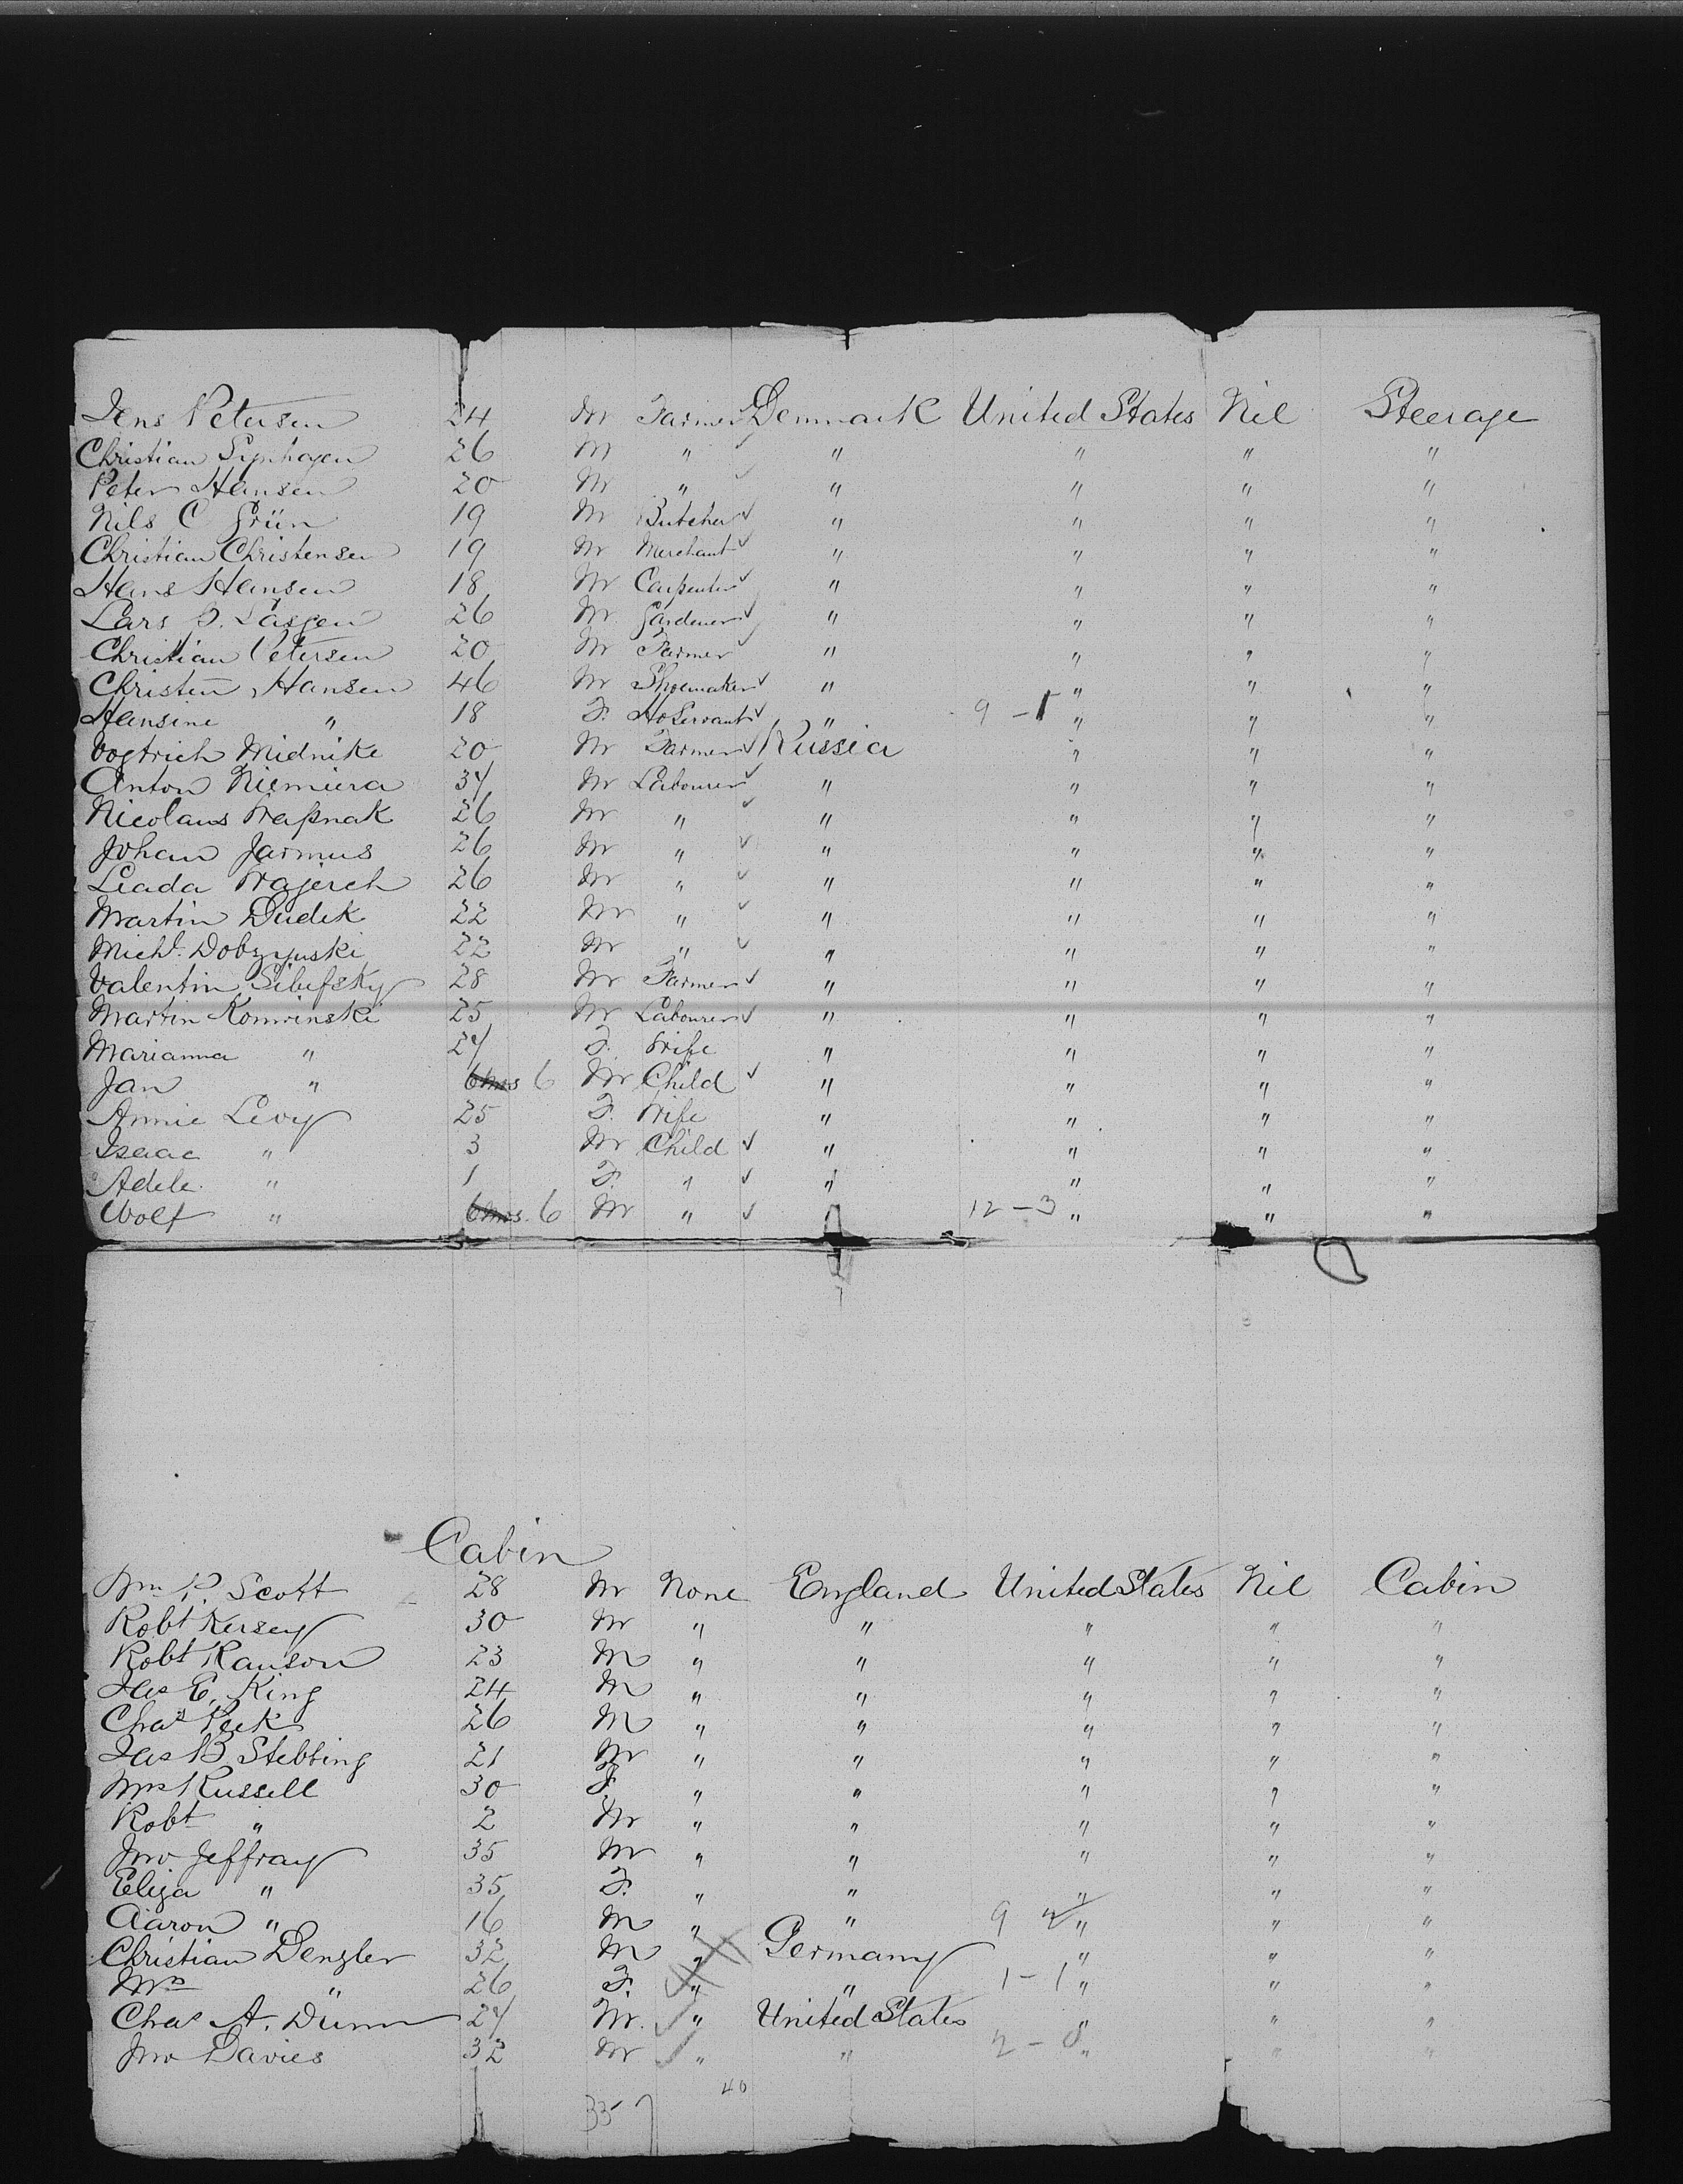 Jens Petersen 24 M Farmer Denmark United States Nil Steerage
Christian Synhagen 26 M " " " " "
Peter Hansen 20 M " " " " "
Nils C Grün 19 M Butcher " " " "
Christian Christensen 19 M Merchant " " " "
Hans Hansen 18 M Carpenter " " " "
Lars 26 M Gardener " " " "
Christian Petersen 20 M Farmer " " " "
Christen Hansen 46 M Shoemaker " " " "
Hansine " 18 F. Ho Servant " 9 - 1 " " "
Midnike 20 M Farmer Russia " " "
Anton Niemiera 34 M Labourer " " " "
Nicolaus 26 M " " " " "
Johan Jarmus 26 M " " " " "
Leada Wajerch 26 M " " " " "
Martin Dudek 22 M " " " " "
Michl. Dobzynski 22 M " " " " "
Valentin 28 M Farmer " " " "
Martin Komrinski 25 M Labourer " " " "
Marianna " 24 F. Wife " " " "
Jan " 6 mos 6 M Child " " " "
Annie Levy 25 F. Wife " " " "
Isaac " 3 M Child " " " "
Adele " 1 F. " " " " "
Wolf " 6 mos. 6 M " " 12 - 3 " " "
Cabin
Wm P. Scott 28 M None England United States Nil Cabin
Robt Kersey 30 M " " " " "
Robt Ranson 23 M " " " " "
Jas E. King 24 M " " " " "
Chas Peek 26 M " " " " "
Jas B Stebbing 21 M " " " " "
Mrs Russell 30 F. " " " " "
Robt " 2 M " " " " "
Jno Jeffray 35 M " " " " "
Eliza " 35 F. " " " " "
Aaron " 16 M " " 9 2 " " "
Christian Denzler 32 M " Germany " " "
Mrs " 26 F. " " 1 - 1 " " "
Chas A. Dunn 24 M. " United States " " "
Jno Davies 32 M " " 2 - 0 " " "
40